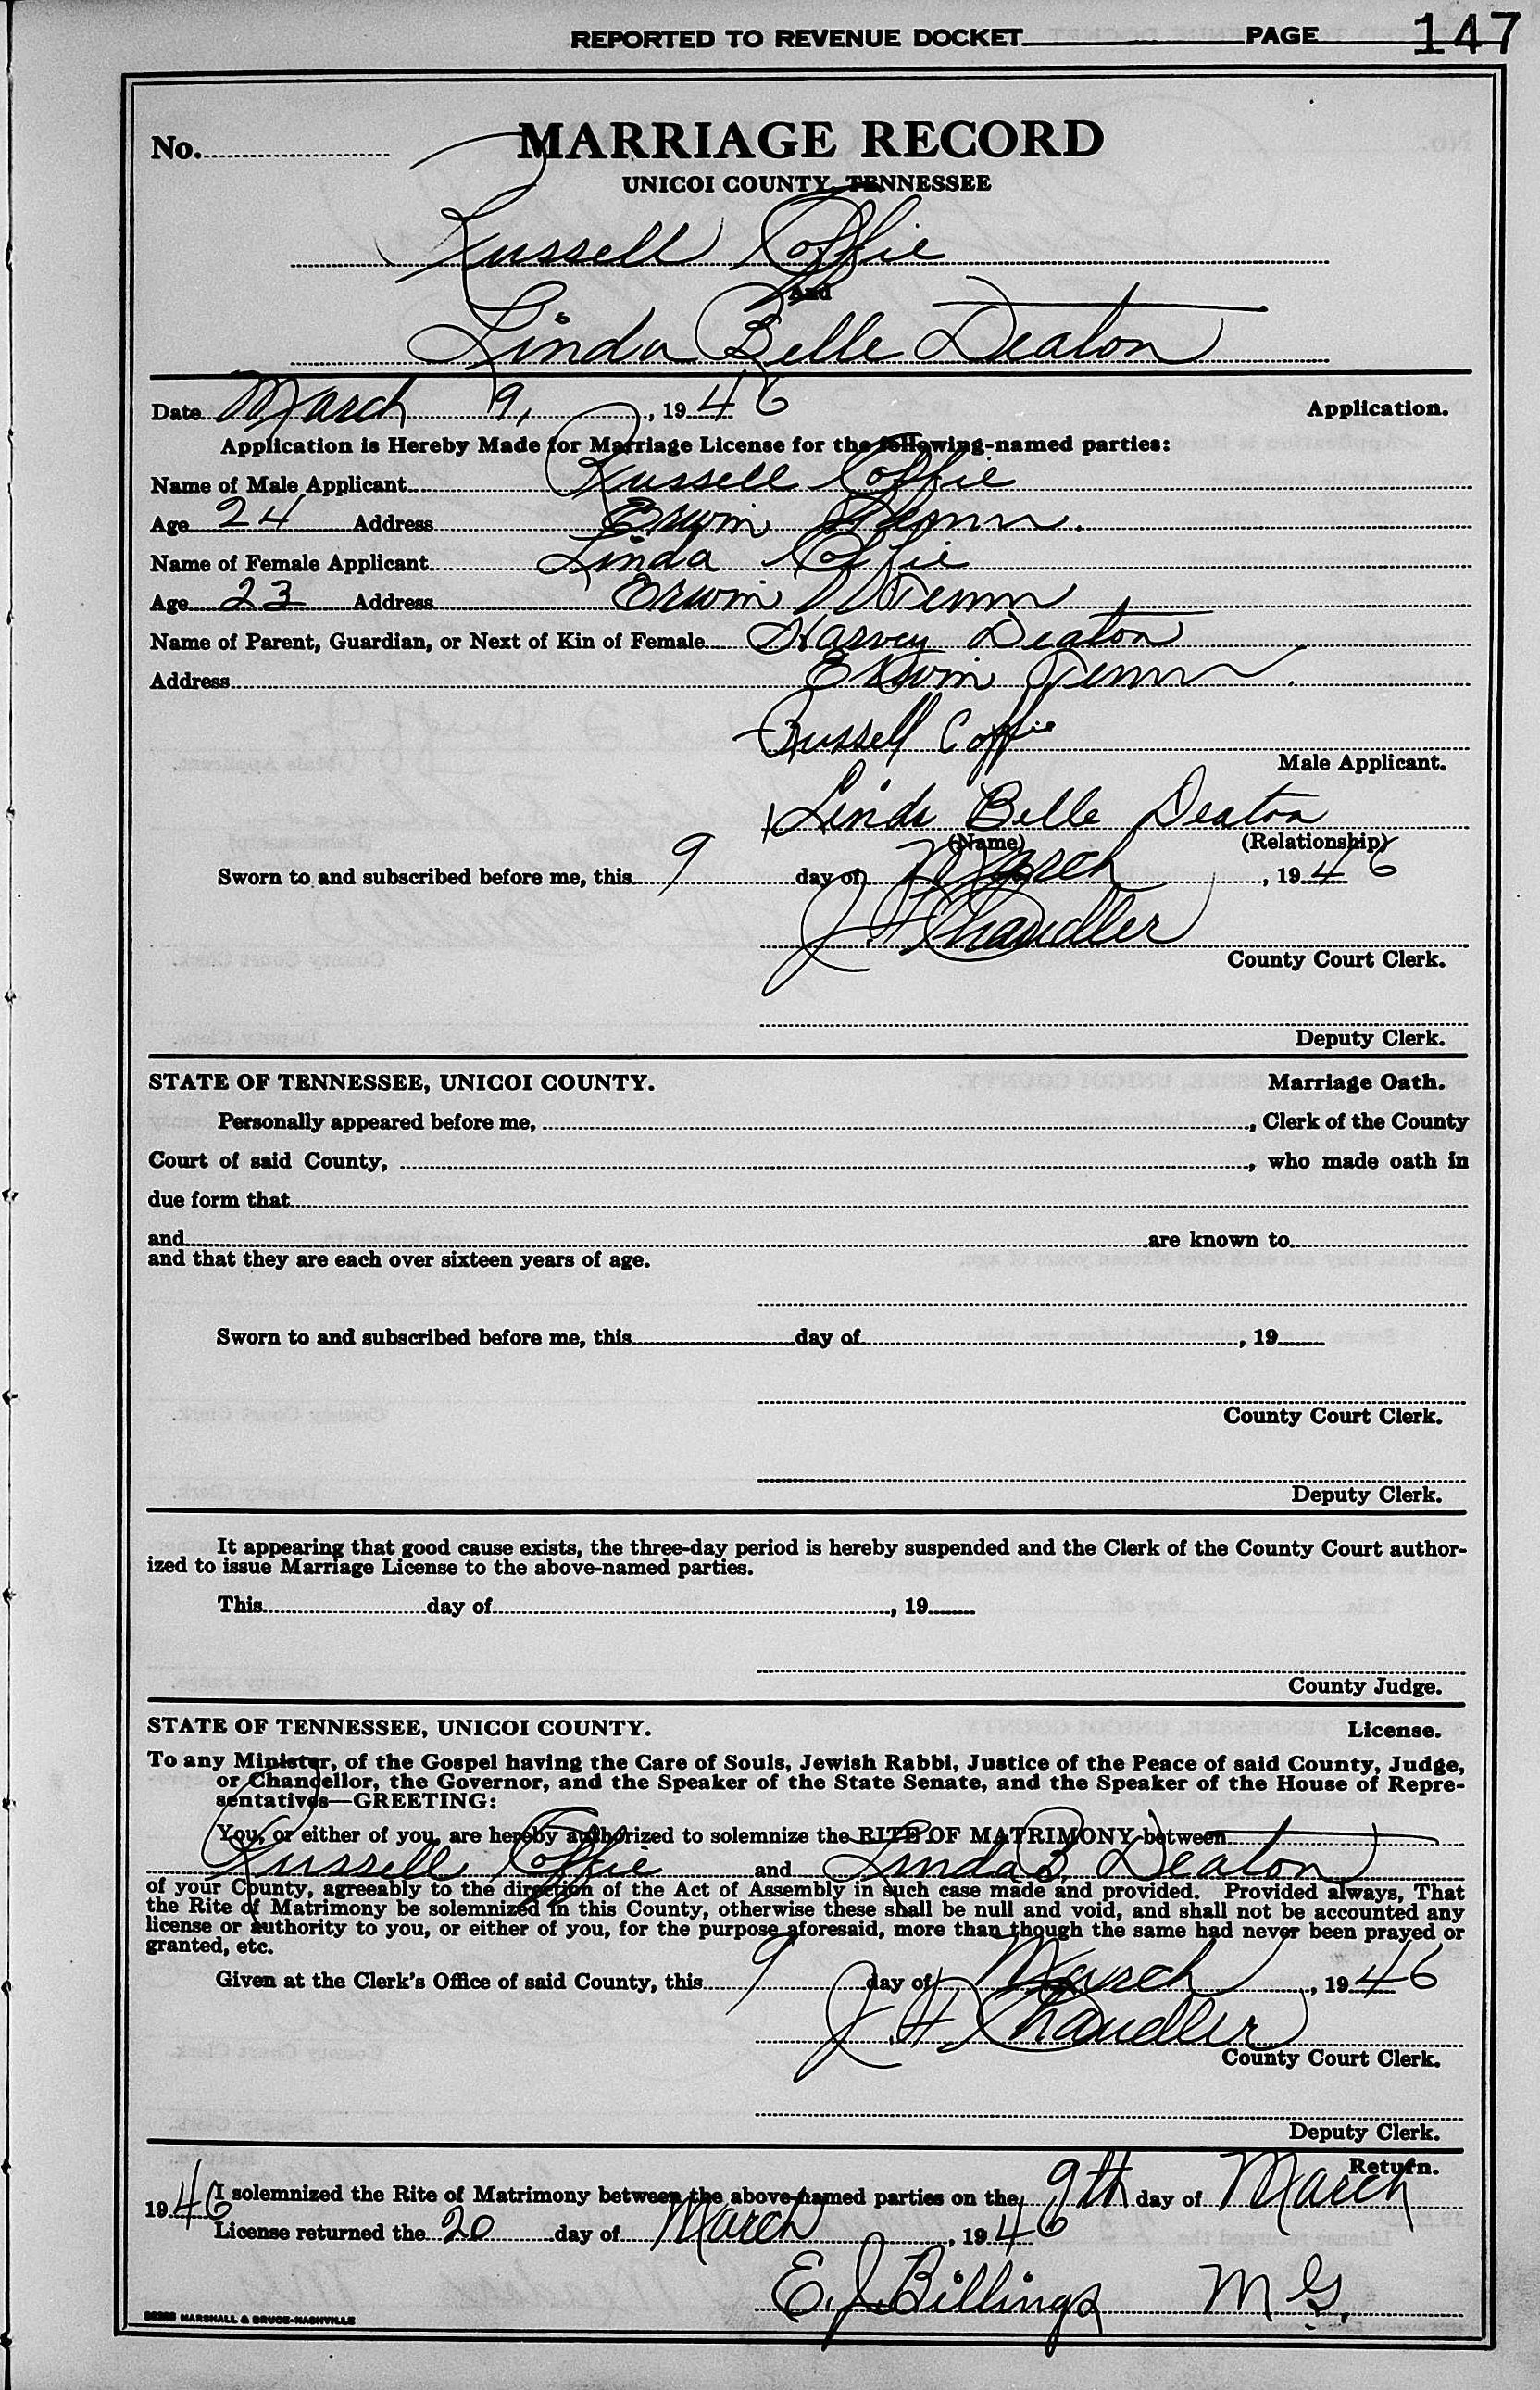 REPORTED TO REVENUE DOCKET PAGE 147
No. MARRIAGE RECORD
UNICOI COUNTY, TENNESSEE
Russell Coffie
And
Linda Belle Deaton
Date March 9, , 19 46 Application.
Application is Hereby Made for Marriage License for the following-named parties:
Name of Male Applicant Russell Coffie
Age 24 Address Erwin Tenn.
Name of Female Applicant Linda Coffie
Age 23 Address Erwin Tenn
Name of Parent, Guardian, or Next of Kin of Female Harvey Deaton
Address Erwin Tenn
Russell Coffie
Male Applicant.
Linda Belle Deaton
(Name) (Relationship)
Sworn to and subscribed before me, this 9 day of March , 19 46
J. H. Chandler
County Court Clerk.
Deputy Clerk.
STATE OF TENNESSEE, UNICOI COUNTY. Marriage Oath.
Personally appeared before me, , Clerk of the County
Court of said County, , who made oath in
due form that
and are known to
and that they are each over sixteen years of age.
Sworn to and subscribed before me, this day of , 19
County Court Clerk.
Deputy Clerk.
It appearing that good cause exists, the three-day period is hereby suspended and the Clerk of the County Court author-
ized to issue Marriage License to the above-named parties.
This day of , 19
County Judge.
STATE OF TENNESSEE, UNICOI COUNTY. License.
To any Minister, of the Gospel having the Care of Souls, Jewish Rabbi, Justice of the Peace of said County, Judge,
or Chancellor, the Governor, and the Speaker of the State Senate, and the Speaker of the House of Repre-
sentatives—GREETING:
You, or either of you, are hereby authorized to solemnize the RITE OF MATRIMONY between
Russell Coffie and Linda B. Deaton
of your County, agreeably to the direction of the Act of Assembly in such case made and provided. Provided always, That
the Rite of Matrimony be solemnized in this County, otherwise these shall be null and void, and shall not be accounted any
license or authority to you, or either of you, for the purpose aforesaid, more than though the same had never been prayed or
granted, etc.
Given at the Clerk's Office of said County, this 9 day of March , 19 46
J. H. Chandler
County Court Clerk.
Deputy Clerk.
Return.
I solemnized the Rite of Matrimony between the above-named parties on the 9th day of March
19 46
License returned the 20 day of March , 19 46
E. J. Billings M G.
MARSHALL & BRUCE-NASHVILLE